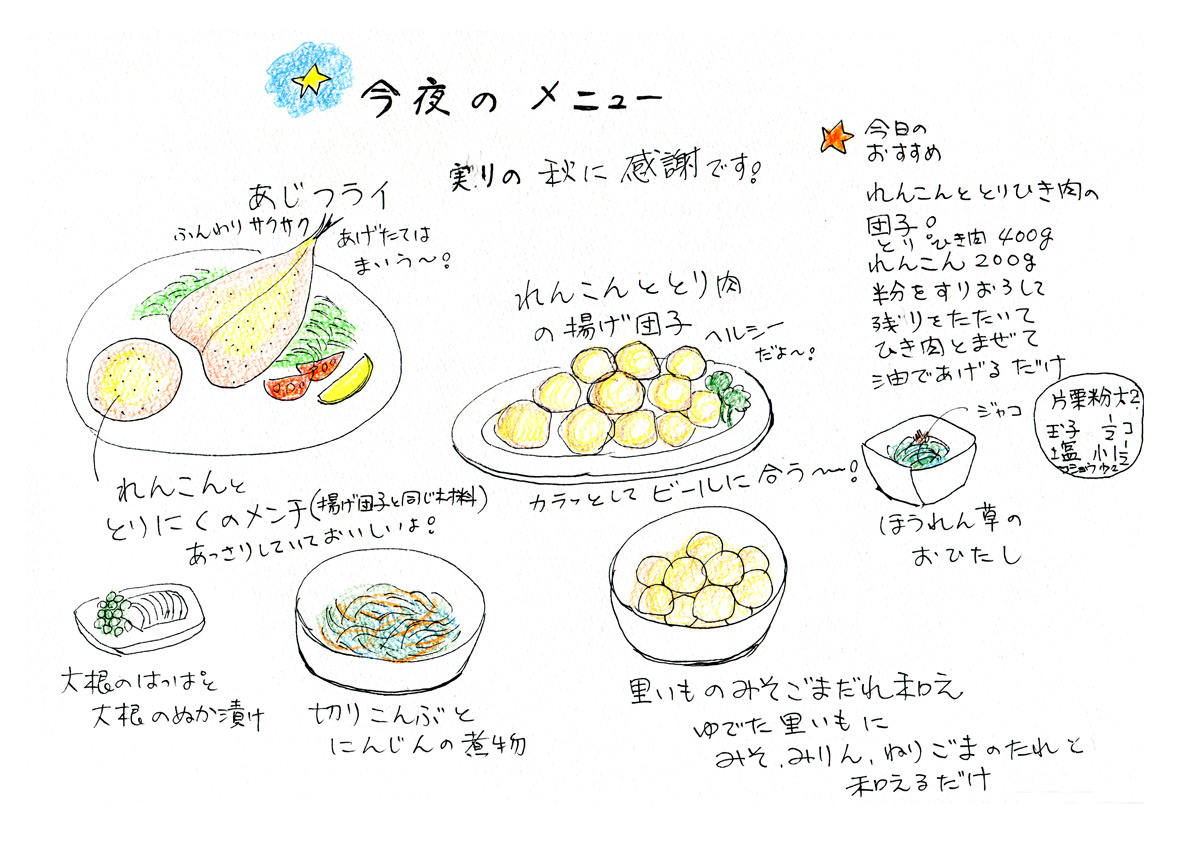 今夜のメニュー
実りの秋に感謝です!
あじフライ
ふんわりサクサク
あげたては
まいう〜!
れんこんと
とりにくのメンチ(揚げ団子と同じ材料)
あっさりしていておいしいよ!
れんこんととり肉
の揚げ団子
ヘルシー
だよ〜!
カラッとしてビールに合う〜〜!
今日の
おすすめ
れんこんととりひき肉の
団子。
とりひき肉400g
れんこん200g
半分をすりおろして
残りをたたいて
ひき肉とまぜて
油であげるだけ
片栗粉大2
玉子 1/2コ
塩 小1/2
コショウ少々
ジャコ
ほうれん草の
おひたし
大根のはっぱと
大根のぬか漬け
切りこんぶと
にんじんの煮物
里いものみそごまだれ和え
ゆでた里いもに
みそ、みりん、ねりごまのたれと
和えるだけ